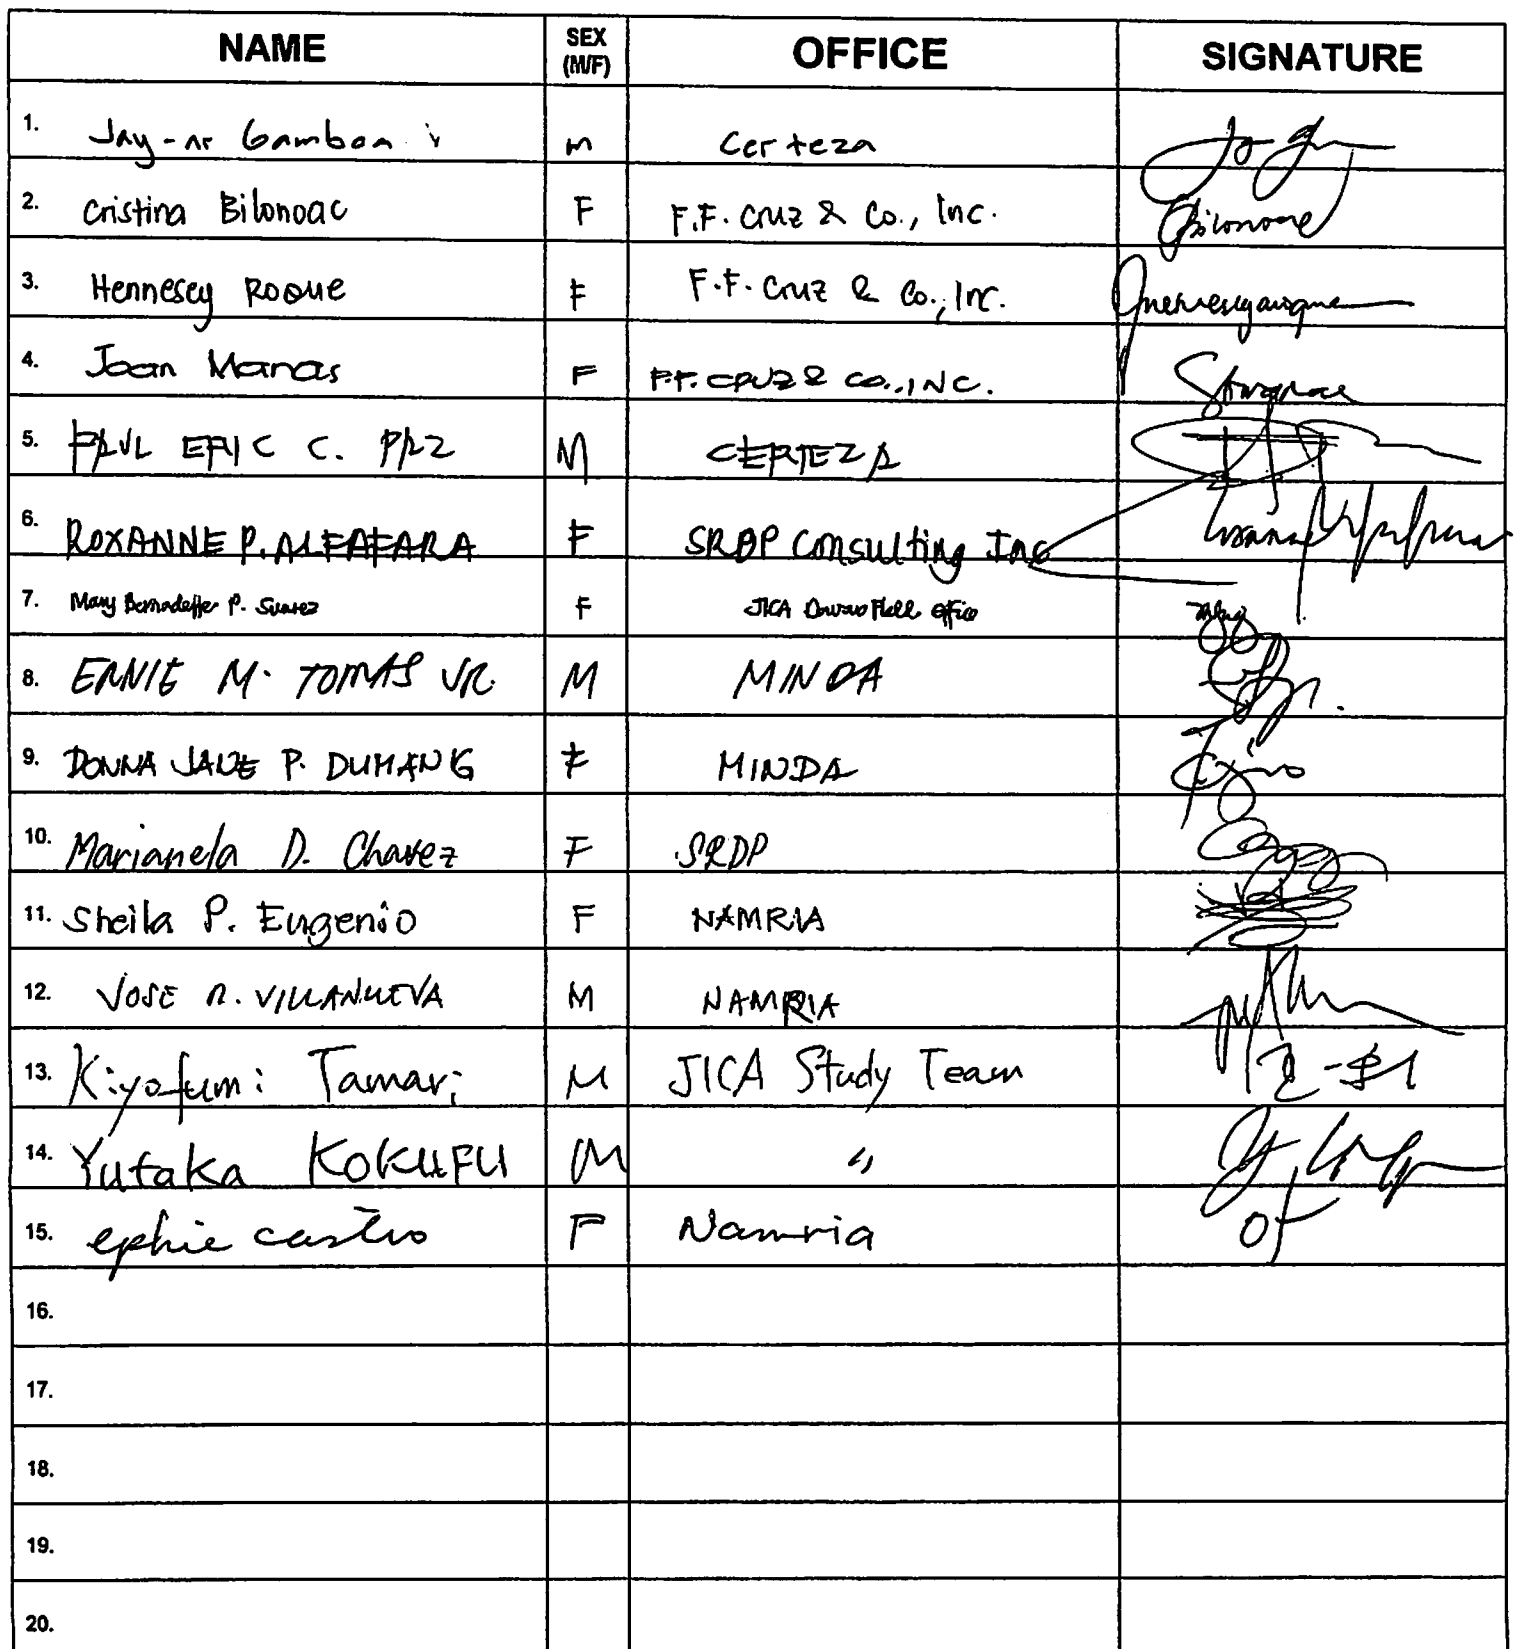 NAME SEX (M/F) OFFICE SIGNATURE
1. Jay-ar Gamboa M Certeza
2. Cristina Bilonoac F F.F. Cruz & Co., Inc.
3. Hennesey Roque F F.F. Cruz & Co., Inc.
4. Joan Manas F F.F. CRUZ & CO., INC.
5. PAUL ERIC C. PAZ M CERTEZA
6. ROXANNE P. ALFAFARA F SRDP Consulting Inc
7. Mary Bernadette P. Suarez F JICA Davao Field Office
8. ERNIE M. TOMAS JR. M MINDA
9. DONNA JANE P. DUMANIG F MINDA
10. Marianela D. Chavez F SRDP
11. Sheila P. Eugenio F NAMRIA
12. JOSE R. VILLANUEVA M NAMRIA
13. Kiyofumi Tamari M JICA Study Team
14. Yutaka KOKUFU M "
15. ephie castro F Namria
16.
17.
18.
19.
20.